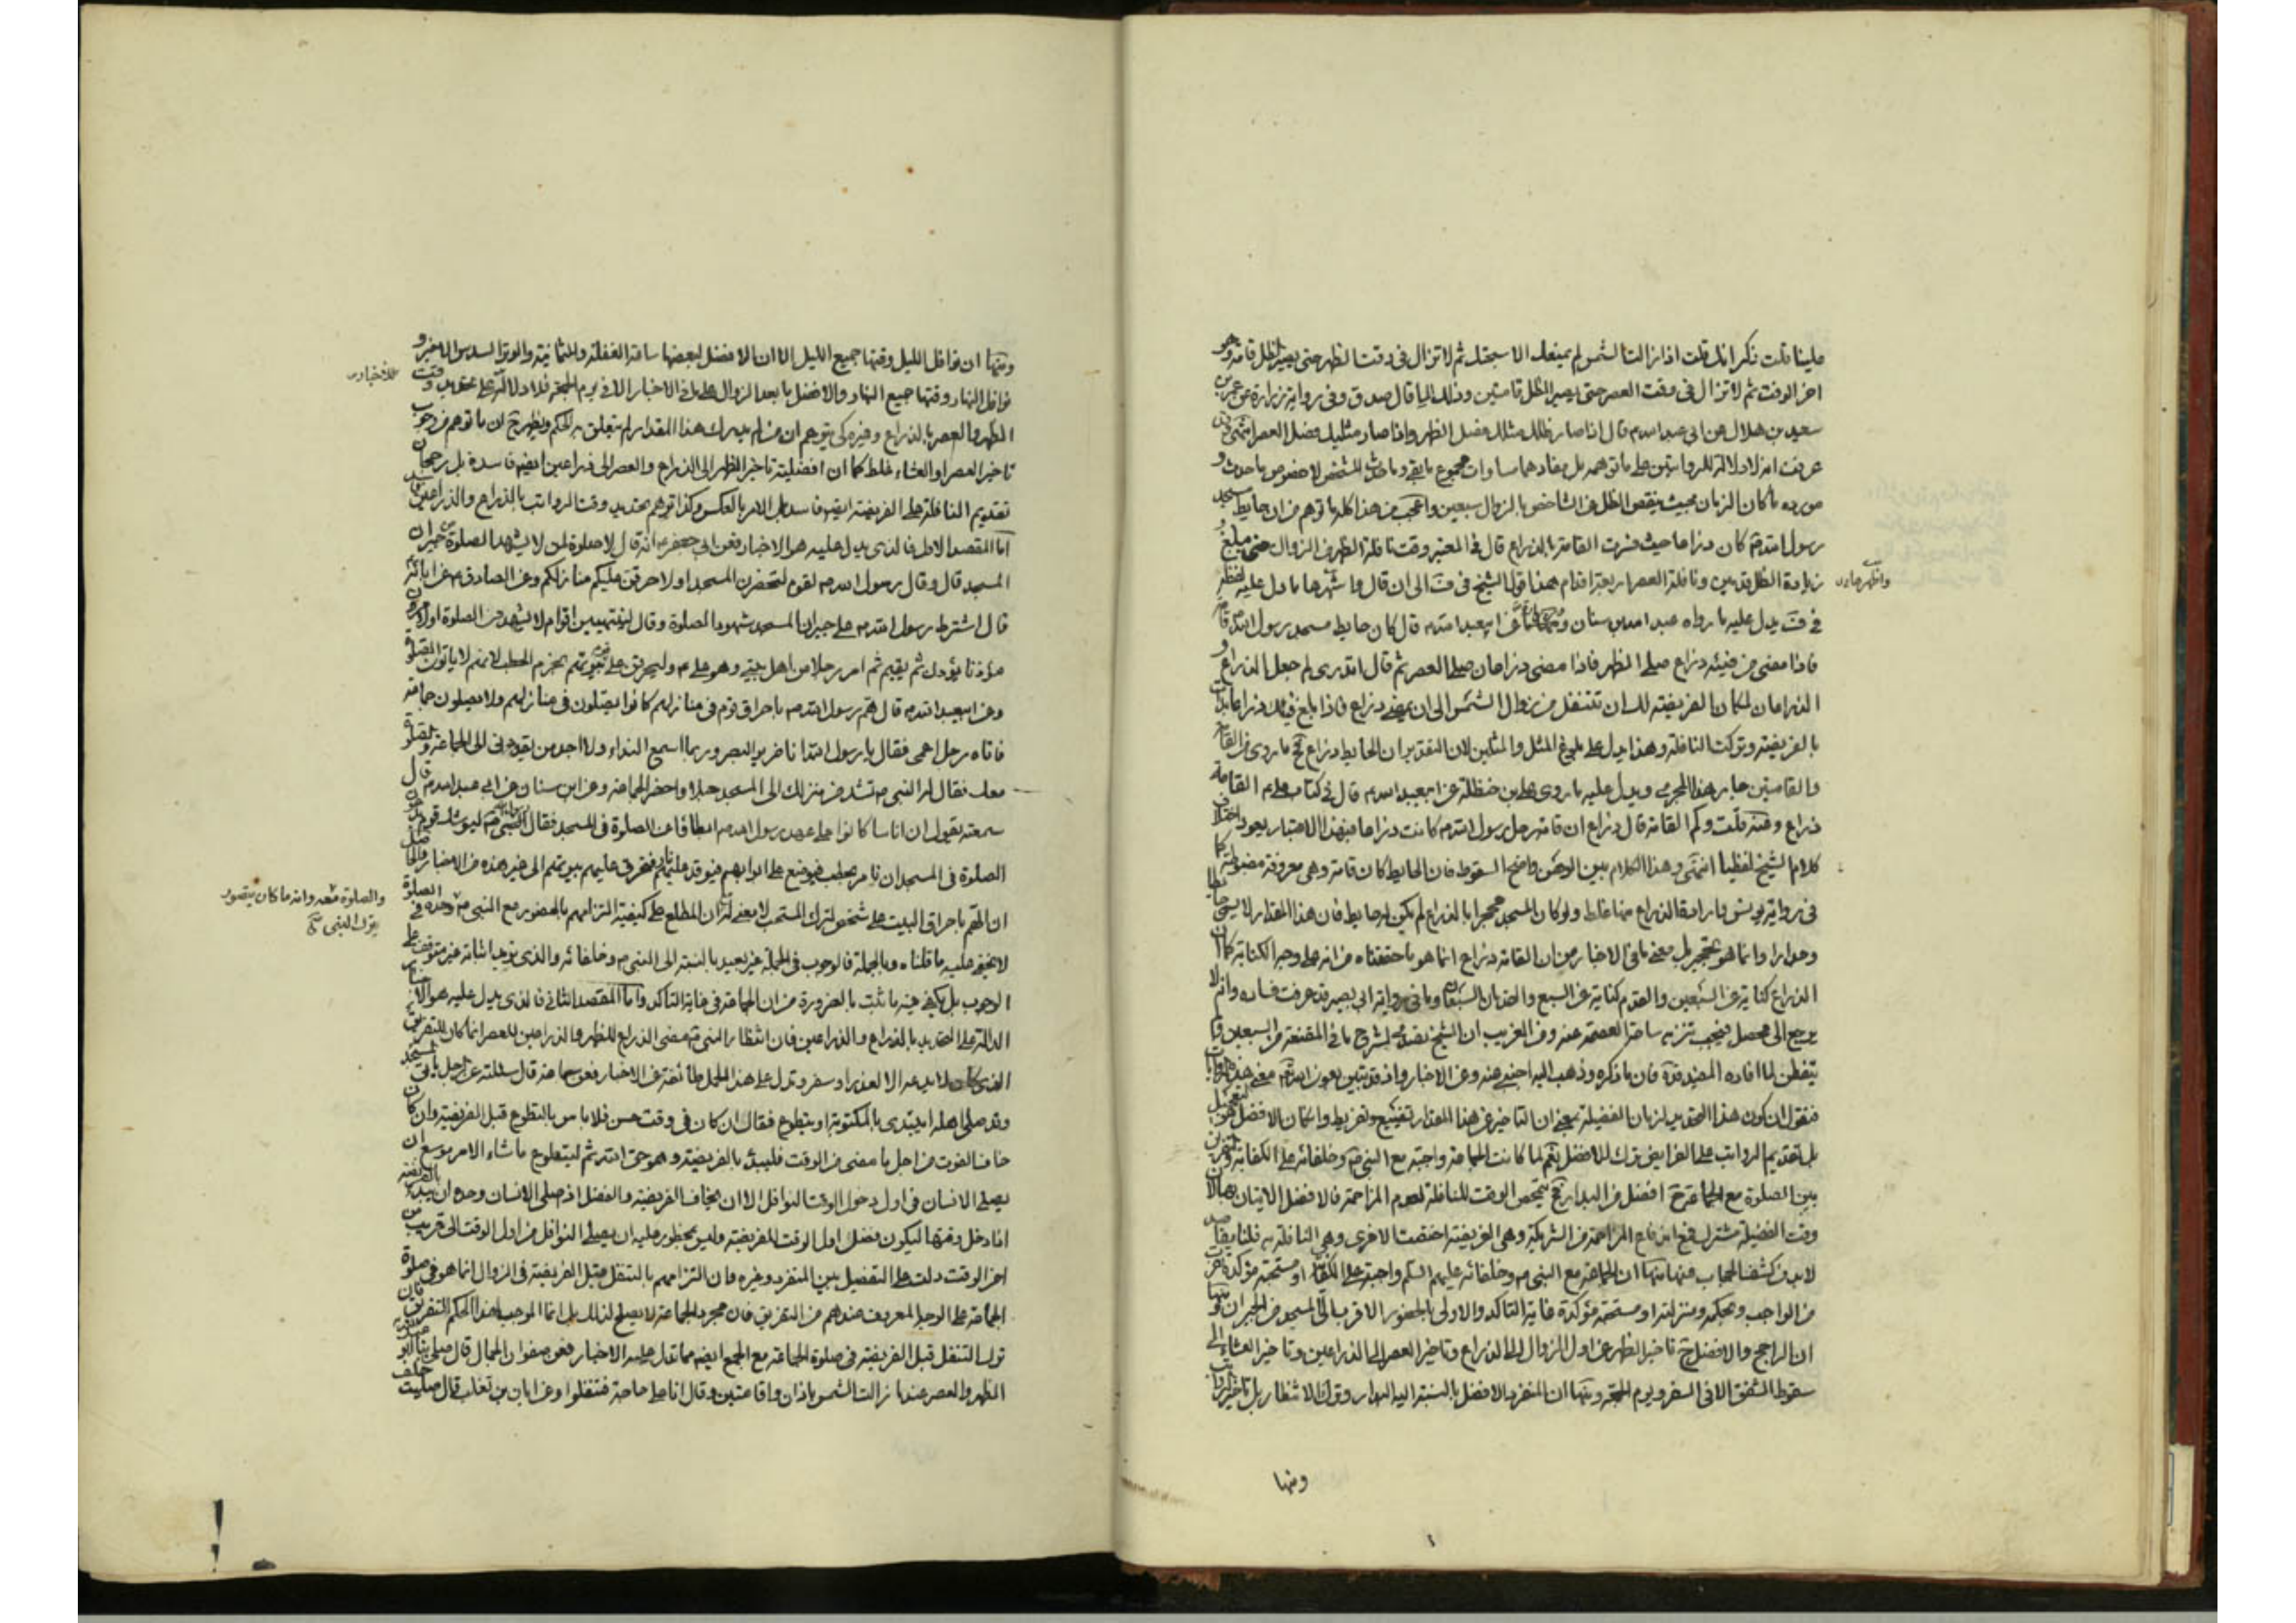 علينا قلت ذكر انك قلت اذا زالت الشمس لم يمنعك الا سبحتك ثم لا تزال فى وقت الظهر حتى يصير الظل قامة وهو
اخر الوقت ثم لا تزال فى وقت العصر حتى يصير الظل قامتين وذلك المساء قال صدق وفى رواية زرارة عن عمر بن
سعيد بن هلال عن ابى عبد الله م قال اذا صار ظلك مثلك فصل الظهر واذا صار مثليك فصل العصر انتهى وقد
عرفت انه لا دلالة للروايتين على ما توهمه بل مفادهما مساوات مجموع ما بقى وما حدث للشخص لا خصوص ما حدث و
مورده ما كان الزمان بحيث ينقص الظل من الشاخص بالزوال سبعين واعجب من هذا كله ما توهم من ان حايط مسجد
رسول الله ص كان ذراعا حيث فسرت القامة بالذراع قال فى المعتبر وقت نافلة الظهر من الزوال حتى مبلغ
زيادة الظل قدمين ونافلة العصر اربعة اقدام هذا قول الشيخ فى الى ان قال ما دل عليه لفظه
فى يدل عليه ما رواه عبد الله بن سنان و عن ابى عبد الله م قال كان حايط مسجد رسول الله ص قامة
فاذا مضى من فيئه ذراع صلى الظهر فاذا مضى ذراعان صلى العصر ثم قال اتدرى لم جعل الذراع و
الذراعان لمكان الفريضة لك ان تتنفل من زوال الشمس الى ان يمضى ذراع فاذا بلغ فيئك ذراعا بدأت
بالفريضة وتركت النافلة وهذا يدل على بلوغ المثل والمثلين لان التقدير ان الحايط ذراع فح ما روى من القامة
والقامتين جار هذا المجرى ويدل عليه ما روى على بن حنظلة عن ابى عبد الله م قال فى كتاب على م القامة
ذراع وعنه قلت وكم القامة قال ذراع ان قامة رحل رسول الله م كانت ذراعا فبهذا الاعتبار يعود اختلاف
كلام الشيخ لفظيا انتهى وهذا الكلام بين الوهن واضح السقوط فان الحايط كان قامة وهى معروفة مضبوطة كما
فى رواية يونس فارادة الذراع منها غلط ولو كان المسجد محجرا بالذراع لم يكن له حايط فان هذا المقدار لا يسمى حايطا
وجدارا وانما هو تحجير بل معنى ما فى الاخبار من ان القامة ذراع انما هو ما حققناه من انه على وجه الكناية كما ان
الذراع كناية عن السبعين والقدم كناية عن السبع وما فى رواية ابى بصير قد عرفت فساده وانه لا
يرجع الى محصل فيجب تنزيه ساحة العصمة عنه ومن الغريب ان الشيخ تصدى لشرح ما فى المقنعة من السبعين و
يتفطن لما افاده المفيد فان ما ذكره وذهب اليه اجنبى عنه وعن الاخبار واذ قد تبين بعون الله معنى هذه الروايات
فنقول ان كون هذا التحديد لزمان الفضيلة بمعنى ان التأخير عن هذا المقدار تضييع وتفريط وان كان الافضل هو التعجيل
بل تقديم الرواتب على الفرايض ترك للافضل نعم لما كانت الجماعة واجبة مع النبى ص وخلفائه على الكفاية
بين الصلوة مع الجماعة افضل من البدار فح يتمحض الوقت للنافلة لعدم المزاحمة فالافضل الاتيان بها
وقت الفضيلة مشترك فمع ارتفاع المزاحمة من الشريكة وهى الفريضة اختصت الاخرى وهى النافلة به فلنا مقاصد
لا بد من كشف الحجاب عنها منها ان الجماعة مع النبى م وخلفائه عليهم السلم واجبة على الكفاية او مستحبة مؤكدة
من الواجب وبحكمه ومنزلته او مستحبة مؤكدة غاية التاكد والاولى بالحضور الاقرب الى المسجد من الجيران ومنها
ان الراجح والافضل ح تاخير الظهر عن اول الزوال الى الذراع وتاخير العصر الى الذراعين وتاخير العشاء الى
سقوط الشفق الا فى السفر ويوم الجمعة ومنها ان المنفرد الافضل بالنسبة اليه البدار وترك الانتظار بل تاخير الرواتب
ومنها
ومنها ان نوافل الليل وقتها جميع الليل الا ان الافضل لبعضها ساعة الغفلة وللثمانية والوتر السدس الاخير و
نوافل النهار وقتها جميع النهار والافضل ما بعد الزوال على ما فى الاخبار الا فى يوم الجمعة فلا دلالة على تحديد وقت
الظهر والعصر بالذراع وغيره كى يتوهم ان من لم يدرك هذا المقدار لم يتعلق به الحكم ويظهر ح ان ما توهم من وجوب
تاخير العصر او العشاء غلط كما ان افضلية تاخير الظهر الى الذراع والعصر الى ذراعين ايضا فاسدة بل رجحان
تقديم النافلة على الفريضة ايضا فاسد بل الامر بالعكس وكذا توهم تحديد وقت الرواتب بالذراع والذراعين فاسد
اما المقصد الاول فالذى يدل عليه هو الاخبار فعن ابى جعفر م انه قال لا صلوة لمن لا يشهد الصلوة من جيران
المسجد قال وقال رسول الله م لقوم لتحضرن المسجد او لاحرقن عليكم منازلكم وعن الصادق م عن ابائه
قال اشترط رسول الله م على جيران المسجد شهود الصلوة وقال لينتهين اقوام لا يشهدون الصلوة او لامرن
مؤذنا يؤذن ثم يقيم ثم امر رجلا من اهل بيتى وهو على م وليحرقن على قوم بيوتهم بحزم الحطب لانهم لا ياتون الصلوة
وعن ابى عبد الله م قال هم رسول الله م باحراق قوم فى منازلهم كانوا يصلون فى منازلهم ولا يصلون جماعة
فاتاه رجل اعمى فقال يا رسول الله انا ضرير البصر وربما اسمع النداء ولا اجد من يقودنى الى الجماعة والصلوة
معك فقال له النبى م تشد من منزلك الى المسجد حبلا واحضر الجماعة وعن ابن سنان عن ابى عبد الله م قال
سمعته يقول ان اناسا كانوا على عهد رسول الله م ابطأوا عن الصلوة فى المسجد فقال النبى ص ليوشك قوم يدعون
الصلوة فى المسجد ان نامر بحطب فيوضع على ابوابهم فيوقد عليهم نار فتحرق عليهم بيوتهم الى غير هذه من الاخبار والحاصل
ان الهم باحراق البيت على شخص لترك المستحب لا معنى له ان المطلع على كيفية التزامهم بالحضور مع النبى ص وحده فى الصلوة
لا يخفى عليه ما قلناه وبالجملة فالوجوب فى الجملة غير بعيد بالنسبة الى النبى م وخلفائه والذى نريد اثباته غير متوقف على
الوجوب بل يكفى فيه ما ثبت بالضرورة من ان الجماعة فى غاية التاكد واما المقصد الثانى فالذى يدل عليه هو الاخبار
الدالة على التحديد بالذراع والذراعين فان انتظار النبى ص مضى الذراع للظهر والذراعين للعصر انما كان للتفريق
الذى كان لا يدعه الا لعذر او سفر وتدل على هذا الحمل طائفة من الاخبار فعن سماعة قال سئلته عن الرجل ياتى المسجد
وقد صلى اهله ايبتدى بالمكتوبة او يتطوع فقال ان كان فى وقت حسن فلا باس بالتطوع قبل الفريضة وان كان
خاف الفوت من اجل ما مضى من الوقت فليبدء بالفريضة وهو حق الله ثم ليتطوع ما شاء الامر موسع ان
يصلى الانسان فى اول دخول الوقت النوافل الا ان يخاف الفريضة والفضل اذ صلى الانسان وحده ان يبدء بالفريضة
اذا دخل وقتها ليكون فضل اول الوقت للفريضة وليس بمحظور عليه ان يصلى النوافل من اول الوقت الى قريب من
اخر الوقت دلت على التفصيل بين المنفرد وغيره فان التزامهم بالتنفل قبل الفريضة فى الزوال انما هو فى صلوة
الجماعة على الوجه المعروف عندهم من التفريق فان مجرد الجماعة لا يصلح لذلك بل انما الموجب لهذا الحكم التفريق فان
ترك التنفل قبل الفريضة فى صلوة الجماعة مع الجمع ايضا مما تدل عليه الاخبار فعن صفوان الجمال قال صلى بنا ابو عبد الله
الظهر والعصر عندما زالت الشمس باذان واقامتين وقال انا على حاجة فتنفلوا وعن ابان بن تغلب قال صليت خلف
والصلوة معه وانه ما كان يتصور